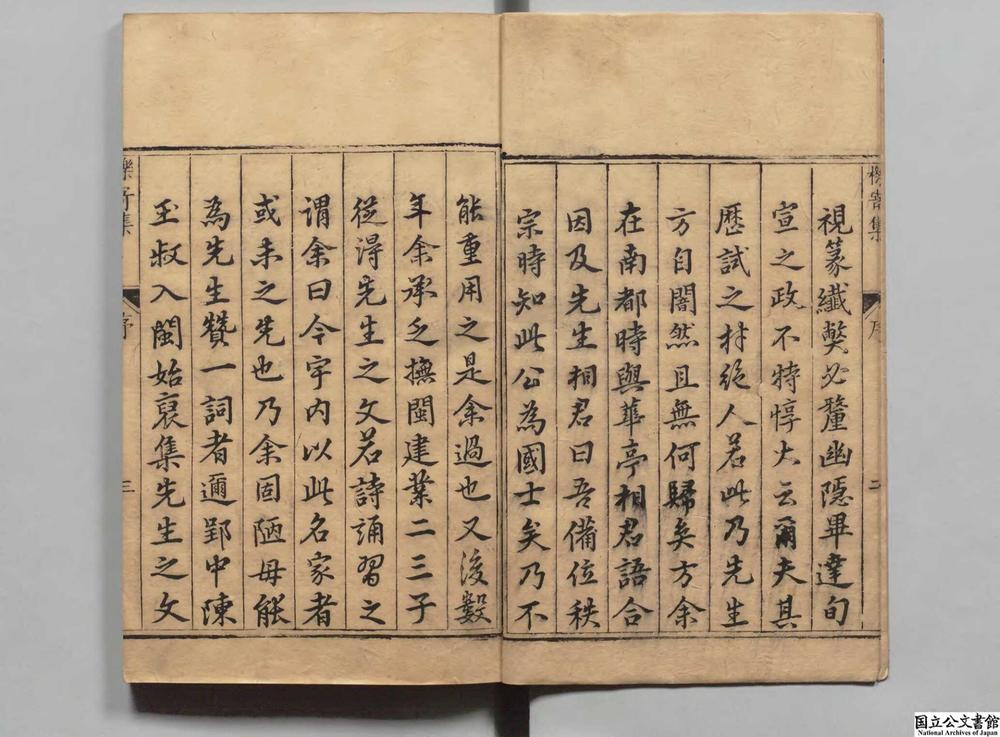 視篆纖弊必釐幽隱畢達旬
宣之政不特惇大云爾夫其
歷試之材絕人若此乃先生
方自闇然且無何歸矣方余
在南都時與華亭相君語合
因及先生相君曰吾備位秩
宗時知此公為國士矣乃不
能重用之是余過也又後數
年余承乏撫閩建業二三子
從得先生之文若詩誦習之
謂余曰今宇内以此名家者
或未之先也乃余固陋毋能
為先生贊一詞者邇郢中陳
玉叔入閩始裒集先生之文
櫟寄集
序
二
櫟寄集
序
三
国立公文書館
National Archives of Japan